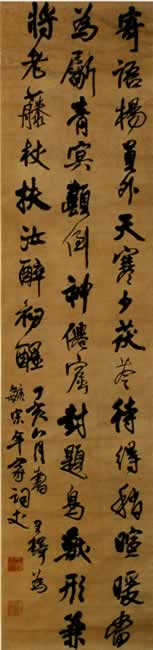 寄語楊員外天寒少茯苓待得稍暄暖當
為劚青冥顛倒神僊窟封題鳥獸形兼
將老藤杖扶汝醉初醒
丁亥八月書王鐸為
毓宗年家詞丈